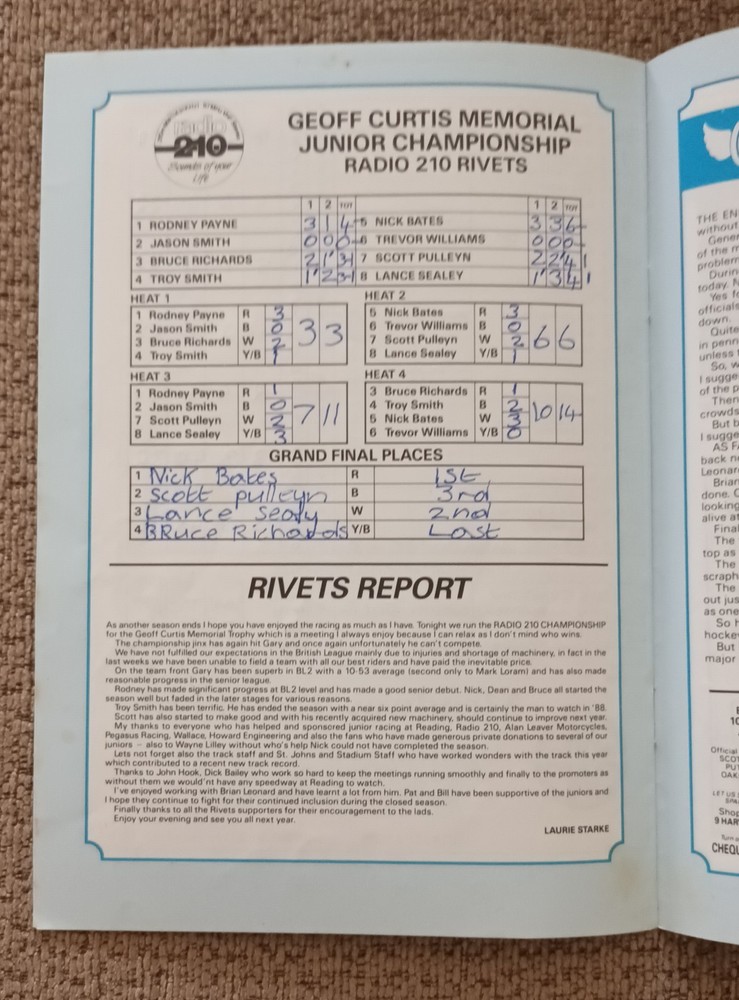 radio
210
Sounds of your
Life
GEOFF CURTIS MEMORIAL
JUNIOR CHAMPIONSHIP
RADIO 210 RIVETS
1 2 TOT 1 2 TOT
1 RODNEY PAYNE 3 1 4 5 NICK BATES 3 3 6
2 JASON SMITH 0 0 0 6 TREVOR WILLIAMS 0 0 0
3 BRUCE RICHARDS 2 1' 3' 7 SCOTT PULLEYN 2 2 4 1
4 TROY SMITH 1' 2 3 1 8 LANCE SEALEY 1' 3 4 1
HEAT 1
1 Rodney Payne R 3
2 Jason Smith B 0 3 3
3 Bruce Richards W 2
4 Troy Smith Y/B 1
HEAT 2
5 Nick Bates R 3
6 Trevor Williams B 0
7 Scott Pulleyn W 2 6 6
8 Lance Sealey Y/B 1
HEAT 3
1 Rodney Payne R 1
2 Jason Smith B 0 7 11
7 Scott Pulleyn W 2
8 Lance Sealey Y/B 3
HEAT 4
3 Bruce Richards R 1
4 Troy Smith B 2 10 14
5 Nick Bates W 3
6 Trevor Williams Y/B 0
GRAND FINAL PLACES
1 Nick Bates R 1st
2 Scott pulleyn B 3rd
3 Lance Sealy W 2nd
4 BRuce Richards Y/B Last
RIVETS REPORT
As another season ends I hope you have enjoyed the racing as much as I have. Tonight we run the RADIO 210 CHAMPIONSHIP
for the Geoff Curtis Memorial Trophy which is a meeting I always enjoy because I can relax as I don't mind who wins.
The championship jinx has again hit Gary and once again unfortunately he can't compete.
We have not fulfilled our expectations in the British League mainly due to injuries and shortage of machinery, in fact in the
last weeks we have been unable to field a team with all our best riders and have paid the inevitable price.
On the team front Gary has been superb in BL2 with a 10-53 average (second only to Mark Loram) and has also made
reasonable progress in the senior league.
Rodney has made significant progress at BL2 level and has made a good senior debut. Nick, Dean and Bruce all started the
season well but faded in the later stages for various reasons.
Troy Smith has been terrific. He has ended the season with a near six point average and is certainly the man to watch in '88.
Scott has also started to make good and with his recently acquired new machinery, should continue to improve next year.
My thanks to everyone who has helped and sponsored junior racing at Reading, Radio 210, Alan Leaver Motorcycles,
Pegasus Racing, Wallace, Howard Engineering and also the fans who have made generous private donations to several of our
juniors – also to Wayne Lilley without who's help Nick could not have completed the season.
Lets not forget also the track staff and St. Johns and Stadium Staff who have worked wonders with the track this year
which contributed to a recent new track record.
Thanks to John Hook, Dick Bailey who work so hard to keep the meetings running smoothly and finally to the promoters as
without them we would'nt have any speedway at Reading to watch.
I've enjoyed working with Brian Leonard and have learnt a lot from him. Pat and Bill have been supportive of the juniors and
I hope they continue to fight for their continued inclusion during the closed season.
Finally thanks to all the Rivets supporters for their encouragement to the lads.
Enjoy your evening and see you all next year.
LAURIE STARKE
THE EN
without
Gener
of the m
problem
Durin
today. N
Yes fo
officials
down.
Quite
in penn
unless
So, w
I sugge
of the p
Then
crowds
But b
I sugge
AS FA
back n
Leonar
Brian
done. C
looking
alive at
Final
The
top as
The
scraph
The
out jus
as one
So h
hocke
But
major
Official
SCOT
PU
OAK
LET US
Shop
9 HAR
CHEQU